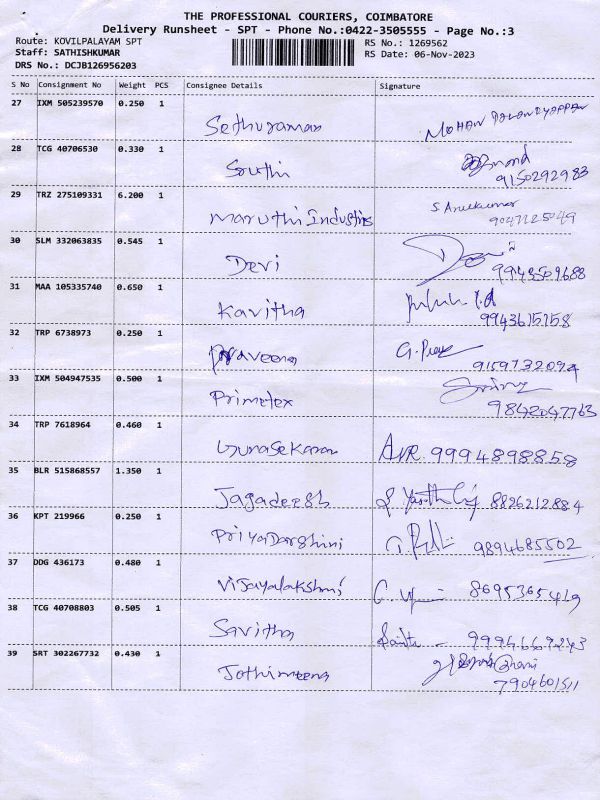 THE PROFESSIONAL COURIERS, COIMBATORE
Delivery Runsheet - SPT - Phone No.:0422-3505555 - Page No.:3
Route: KOVILPALAYAM SPT RS No.: 1269562
Staff: SATHISHKUMAR RS Date: 06-Nov-2023
DRS No.: DCJB126956203
S No Consignment No Weight PCS Consignee Details Signature
27 IXM 505239570 0.250 1
Sethuraman MOHAN
28 TCG 40706530 0.330 1
Sruthi
9150292983
29 TRZ 275109331 6.200 1
Maruthi Industries S Arulkumar
9047125049
30 SLM 332063835 0.545 1
Devi
9943509688
31 MAA 105335740 0.650 1
Kavitha
9943615158
32 TRP 6738973 0.250 1
Praveena G.
9159732094
33 IXM 504947535 0.500 1
Primetex
9842047763
34 TRP 7618964 0.460 1
Gunasekaran 9994898858
35 BLR 515868557 1.350 1
Jagadeesh 8826212884
36 KPT 219966 0.250 1
PriyaDarshini 9894685502
37 DDG 436173 0.480 1
Vijayalakshmi 8695365419
38 TCG 40708803 0.505 1
Savitha 9994669243
39 SRT 302267732 0.430 1
Jothimeena
7904601511